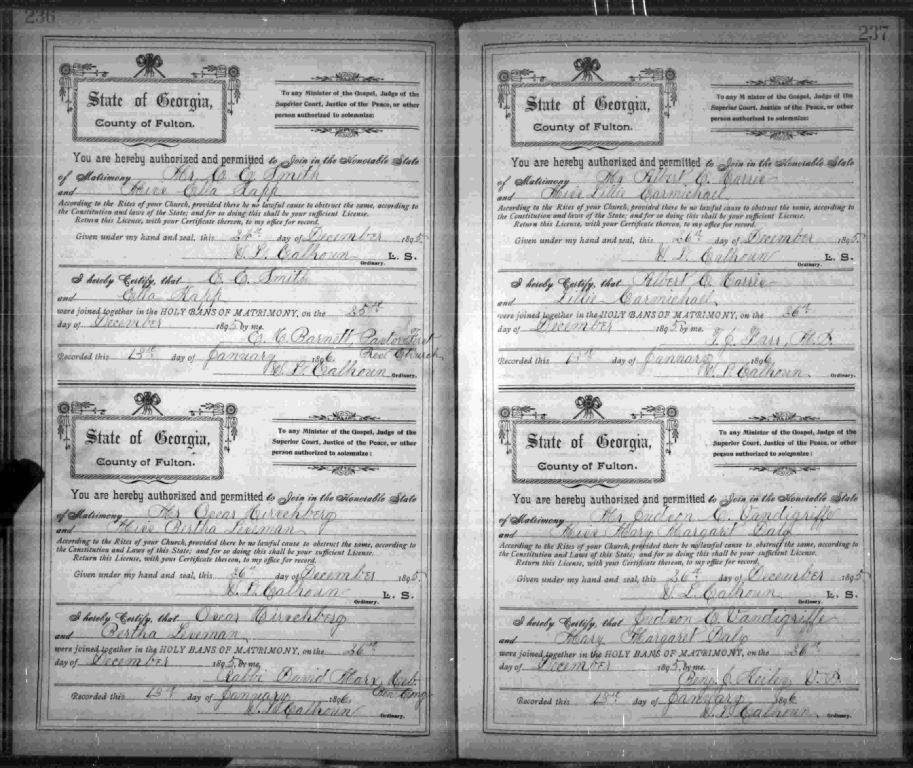 236
State of Georgia,
County of Fulton.
To any Minister of the Gospel, Judge of the
Superior Court, Justice of the Peace, or other
person authorized to solemnize:
You are hereby authorized and permitted to Join in the Honorable State
of Matrimony Mr. E. E. Smith
and Miss Ella Kapp
According to the Rites of your Church, provided there be no lawful cause to obstruct the same, according to
the Constitution and laws of the State; and for so doing this shall be your sufficient License.
Return this License, with your Certificate thereon, to my office for record.
Given under my hand and seal, this 24th day of December 1895.
W. L. Calhoun L. S.
Ordinary.
I hereby Certify, that E. E. Smith
and Ella Kapp
were joined together in the HOLY BANS OF MATRIMONY, on the 25th
day of December 1895 by me.
E. C. Barnett, Pastor First
Church
Recorded this 13th day of January 1896
W. L. Calhoun
Ordinary.
State of Georgia,
County of Fulton.
To any Minister of the Gospel, Judge of the
Superior Court, Justice of the Peace, or other
person authorized to solemnize:
You are hereby authorized and permitted to Join in the Honorable State
of Matrimony Mr Oscar Hirschberg
and Miss Bertha Liebman
According to the Rites of your Church, provided there be no lawful cause to obstruct the same, according to
the Constitution and Laws of this State; and for so doing this shall be your sufficient License.
Return this License, with your Certificate thereon, to my office for record.
Given under my hand and seal, this 26th day of December 1895.
W. L. Calhoun L. S.
Ordinary.
I hereby Certify, that Oscar Hirschberg
and Bertha
were joined together in the HOLY BANS OF MATRIMONY, on the 26th
day of December 1895, by me.
Rabbi David Marx, Heb.
Ben. Cong.
Recorded this 13th day of January 1896
W. L. Calhoun
Ordinary.
237
State of Georgia,
County of Fulton.
To any Minister of the Gospel, Judge of the
Superior Court, Justice of the Peace, or other
person authorized to solemnize:
You are hereby authorized and permitted to Join in the Honorable State
of Matrimony Mr Albert C.
and Miss Lillie Carmichael
According to the Rites of your Church, provided there be no lawful cause to obstruct the same, according to
the Constitution and laws of the State; and for so doing this shall be your sufficient License.
Return this License, with your Certificate thereon, to my office for record.
Given under my hand and seal, this 26th day of December 1895.
W. L. Calhoun L. S.
Ordinary.
I hereby Certify, that Albert C.
and Lillie Carmichael
were joined together in the HOLY BANS OF MATRIMONY, on the 26th
day of December 1895 by me.
Recorded this 13th day of January 1896
W. L. Calhoun
Ordinary.
State of Georgia,
County of Fulton.
To any Minister of the Gospel, Judge of the
Superior Court, Justice of the Peace, or other
person authorized to solemnize:
You are hereby authorized and permitted to Join in the Honorable State
of Matrimony Mr Judson E. Vandigriffe
and Miss Mary Margaret Daly
According to the Rites of your Church, provided there be no lawful cause to obstruct the same, according to the
Constitution and Laws of this State; and for so doing this shall be your sufficient License.
Return this License, with your Certificate thereon, to my office for record.
Given under my hand and seal, this 26th day of December 1895
W. L. Calhoun L. S.
Ordinary.
I hereby Certify, that Judson E. Vandigriffe
and Mary Margaret Daly
were joined together in the HOLY BANS OF MATRIMONY, on the 26th
day of December 1895, by me.
Benj. J. Keiley
Recorded this 13th day of January 1896
W. L. Calhoun
Ordinary.